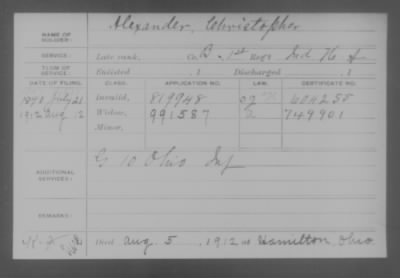 NAME OF SOLDIER: Alexander, Christopher
SERVICE: Late rank, Co. B. 1st Reg't Ind. H. A.
TERM OF SERVICE: Enlisted , 1 Discharged , 1
DATE OF FILING. CLASS. APPLICATION NO. LAW. CERTIFICATE NO.
July 21 Invalid, 819948
1912 Aug. 12 Widow, 991587 749901
Minor,
ADDITIONAL SERVICES: G 10 Ohio Inf
REMARKS:
Died Aug. 5, 1912 at Hamilton, Ohio